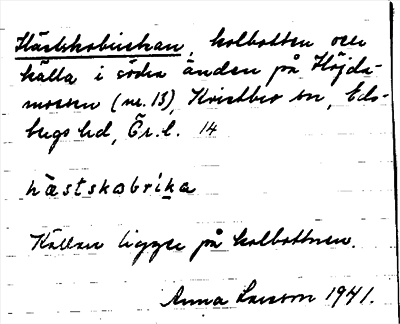 Hästskobrickan, kolbotten och
källa i södra änden på Höjda-
mossen (nr. 13), Kvistbro sn, Eds-
bergs hd, Ör. l. 14
hæstskobrika
Källan ligger på kolbottnen.
Anna Larsson 1941.